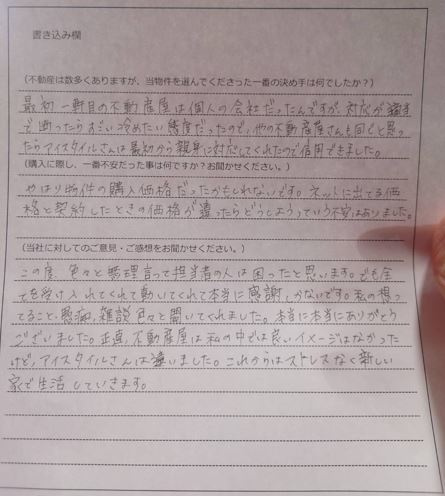 書き込み欄
(不動産は数多くありますが、当物件を選んでくださった一番の決め手は何でしたか?)
最初一軒目の不動産屋は個人の会社だったんですが、対応が適当
で断ったらすごい冷めたい態度だったので、他の不動産屋さんも同じと思っ
たらアイスタイルさんは最初から親身に対応してくれたので信用できました。
(購入に際し、一番不安だった事は何ですか?お聞かせください。)
やはり物件の購入価格だったかもしれないです。ネットに出てる価
格と契約したときの価格が違ったらどうしようっていう不安はありました。
(当社に対してのご意見・ご感想をお聞かせください。)
この度、色々と無理言って担当者の人は困ったと思います。でも全
てを受け入れてくれて動いてくれて本当に感謝しかないです。私の想っ
てること・愚痴、雑談色々と聞いてくれました。本当に本当にありがとう
ございました。正直、不動産屋は私の中では良いイメージはなかった
けど、アイスタイルさんは違いました。これからはストレスなく新しい
家で生活していきます。